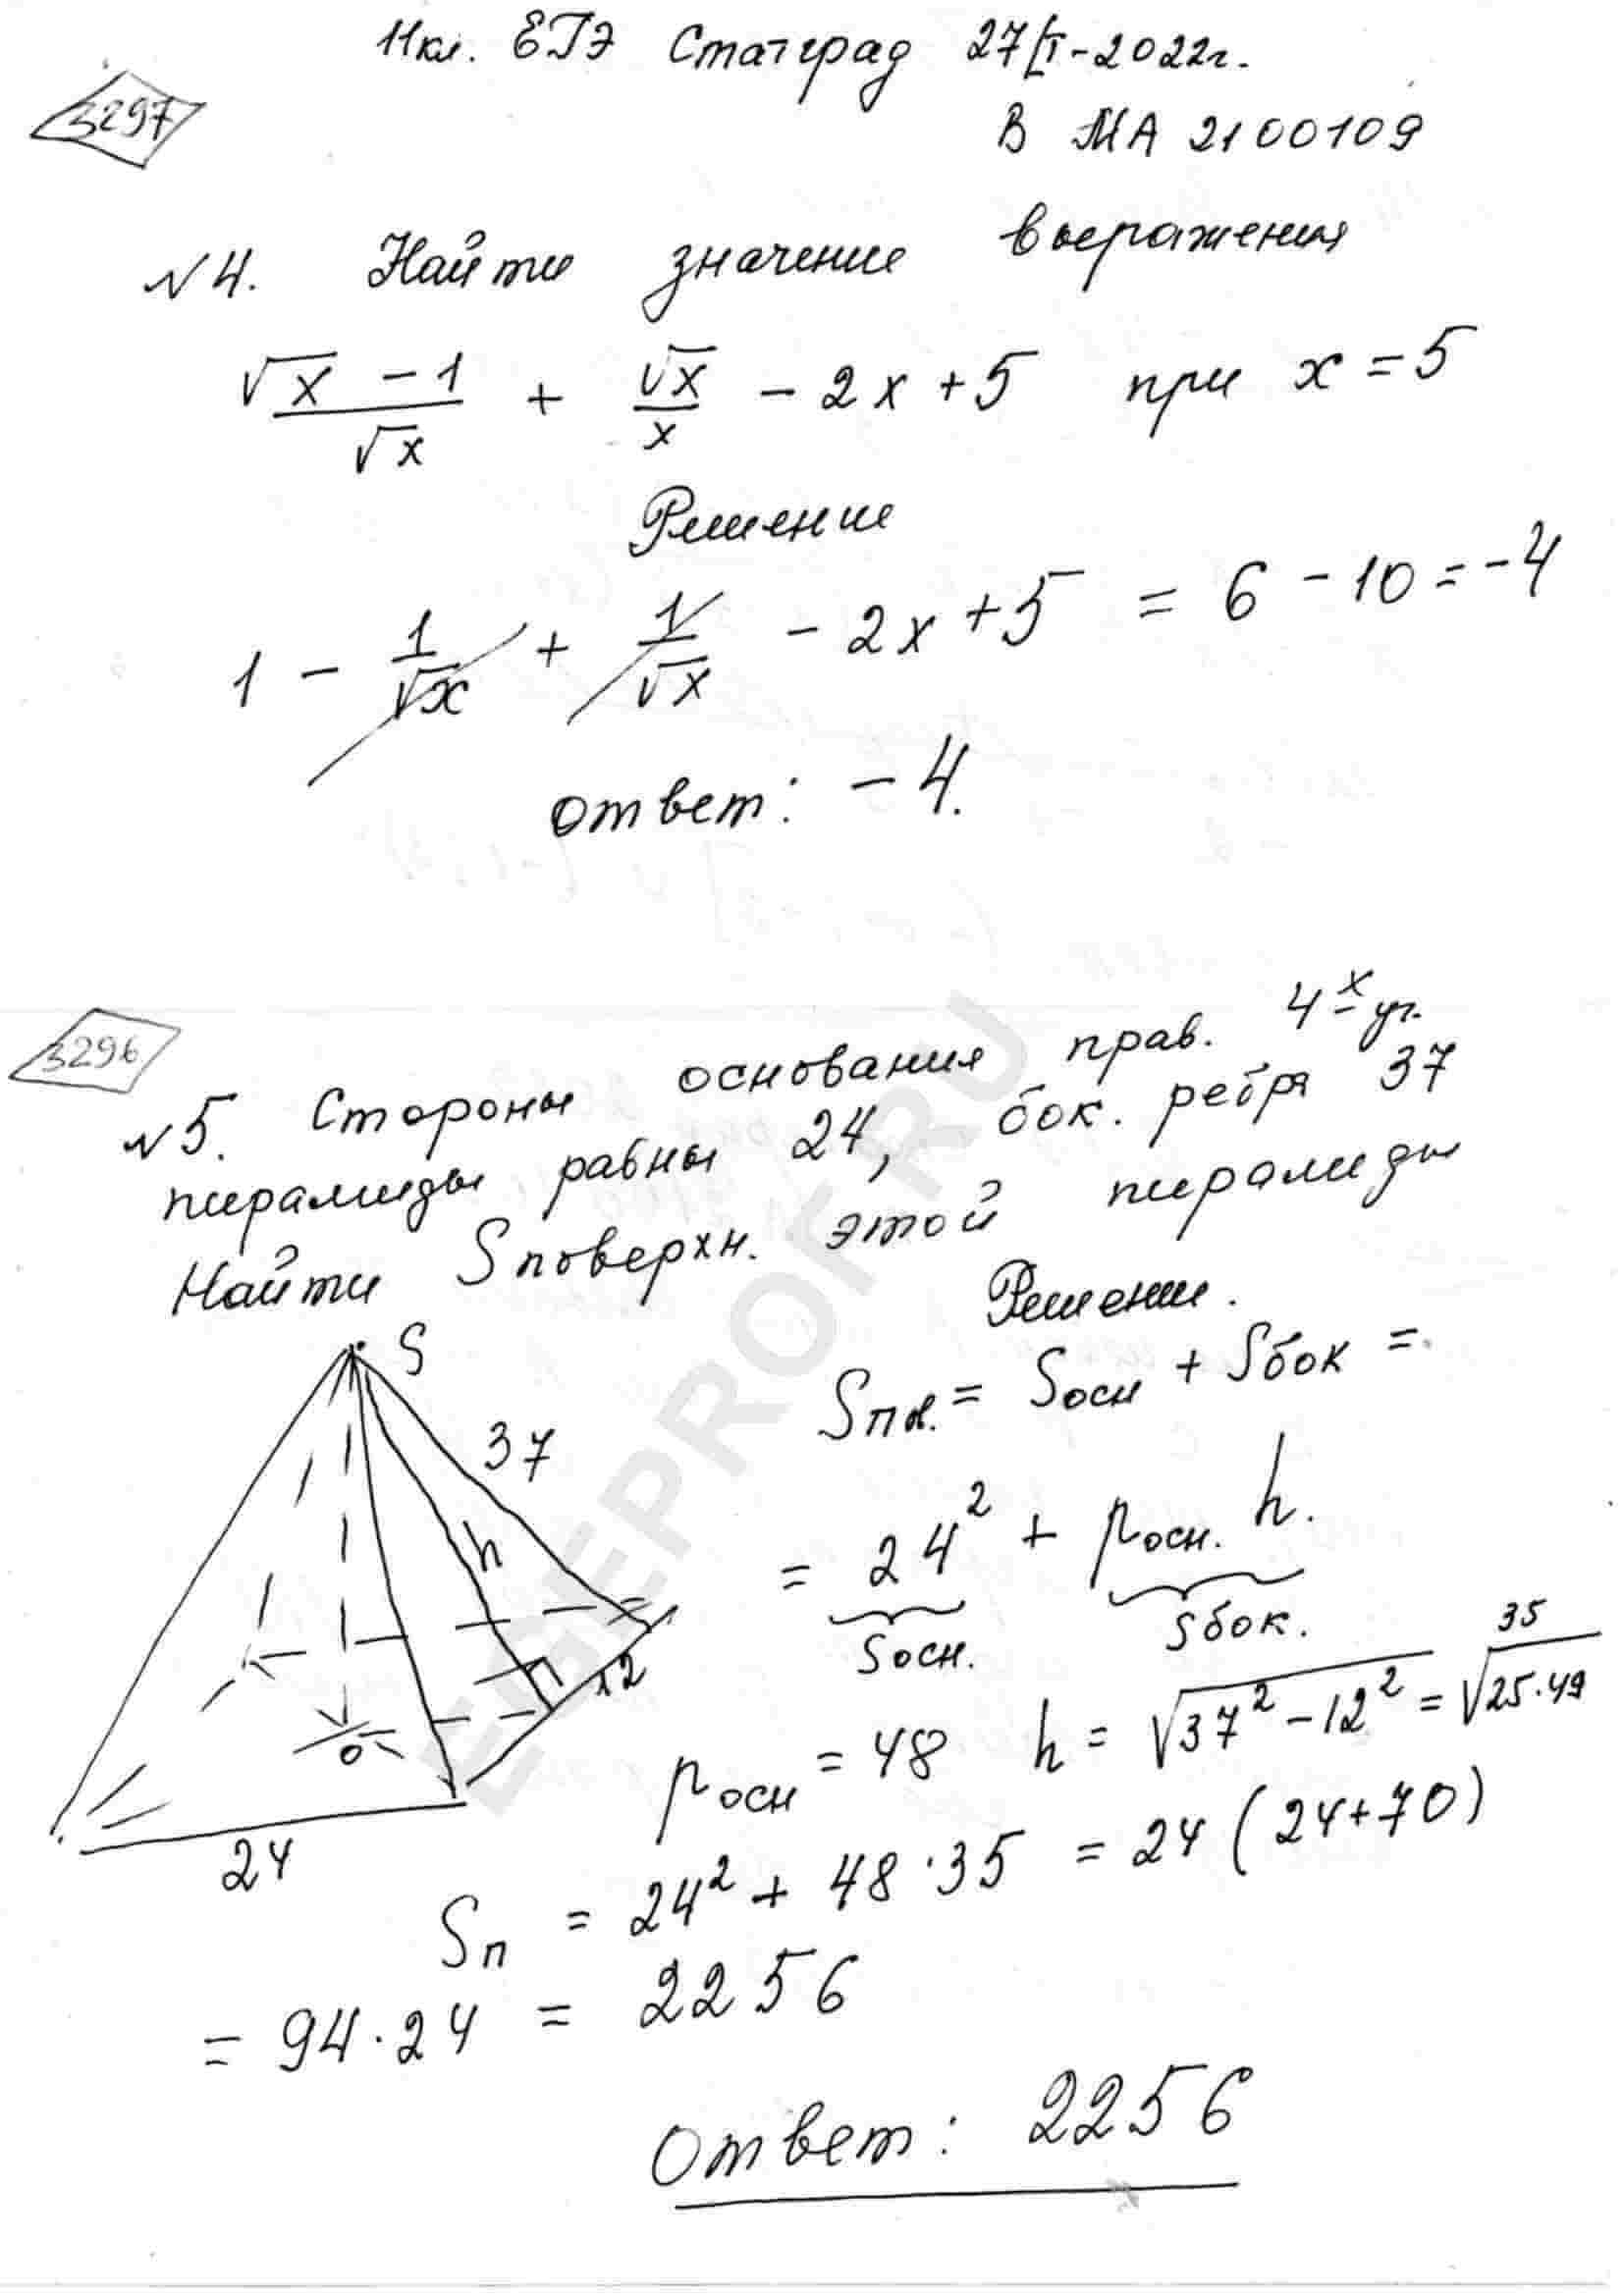 11кл. ЕГЭ Статград 27/I-2022г.
3297
В МА 2100109
№4. Найти значение выражения
(√x - 1)/√x + √x/x - 2x + 5 при x = 5
Решение
1 - 1/√x + 1/√x - 2x + 5 = 6 - 10 = -4
ответ: -4.
3296
№5. Стороны основания прав. 4-х уг.
пирамиды равны 24, бок. ребра 37
Найти Sповерхн. этой пирамиды
Решение.
S
37
h
12
o
24
Sпов. = Sосн + Sбок =
= 24² + pосн. h.
Sосн. Sбок.
pосн = 48 h = √(37² - 12²) = √(25·49) 35
Sп = 24² + 48·35 = 24(24+70)
= 94·24 = 2256
Ответ: 2256
EGEPROF.RU